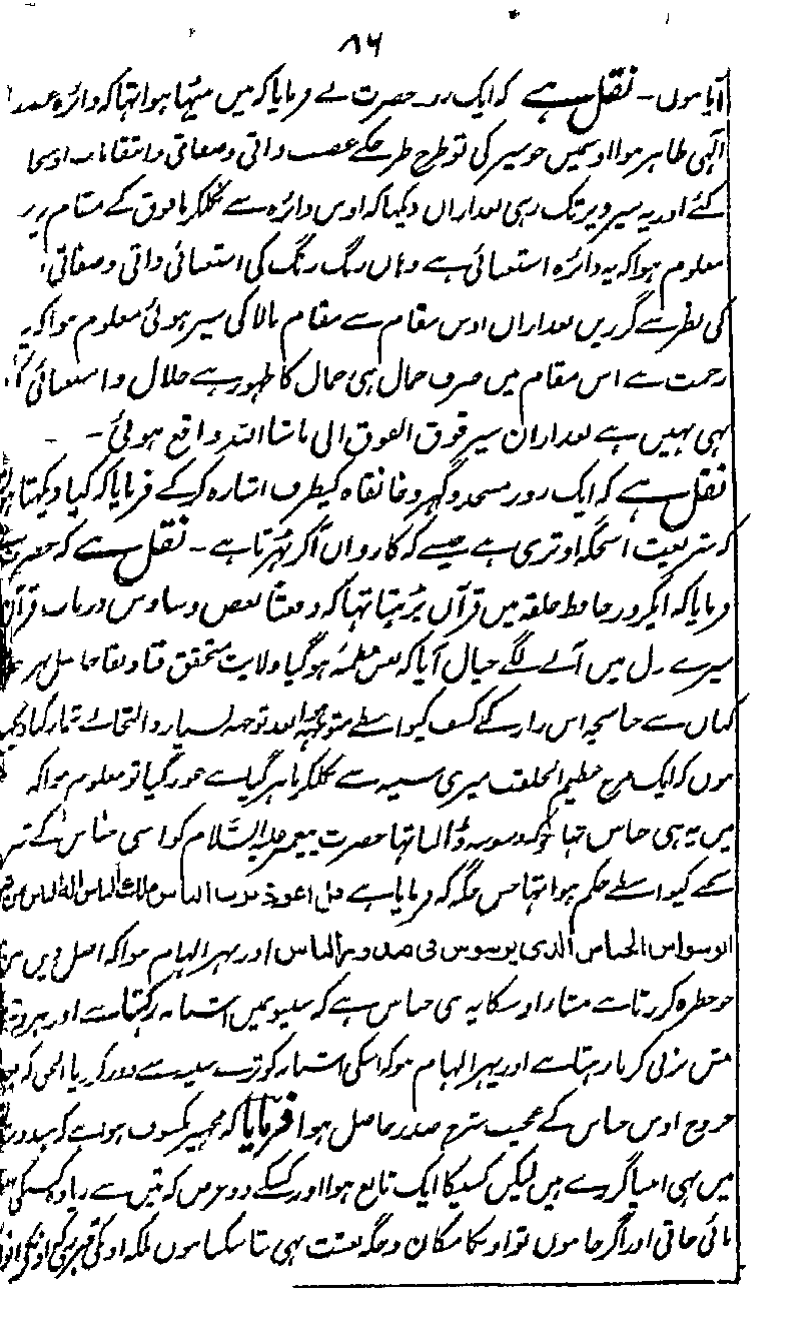 ۸۶
آیا ہوں - نقل ہے کہ ایک روز حضرت نے فرمایا کہ میں بیٹھا ہوا تہا کہ دائرہ
الٰہی ظاہر ہوا اوسمیں جو سیر کی تو طرح طرح کے غضب ذاتی وصفاتی وانتقامات
گئے اور یہ سیر دیر تک رہی بعدازاں دیکہا کہ اوس دائرہ سے نکلکر مافوق کے مقام پر
معلوم ہوا کہ یہ دائرہ استغنائی ہے وہاں رنگ رنگ کی استغنائی ذاتی وصفاتی
کی نظر سے گزریں بعدازاں اوس مقام سے مقام بالا کی سیر ہوئی معلوم ہوا کہ یہ
رحمت ہے اس مقام میں صرف جمال ہی جمال کا ظہور ہے جلال و استغنائی کا
بہی نہیں ہے بعدازان سیر فوق الفوق الی ماشاءاللہ واقع ہوئی -
نقل ہے کہ ایک روز مسجد و گہر و خانقاہ کیطرف اشارہ کرکے فرمایا کہ کیا دیکہتا
کہ شریعت اسجگہ اوتری ہے جیسے کہ کارواں آکر ٹہرتا ہے - نقل ہے کہ حضرت
فرمایا کہ ایکروز حافظ حلقہ میں قرآن پڑہتا تہا کہ دفعتًا بعض وساوس درباب قرآن
میرے دل میں آنے لگے خیال آیا کہ نفس مطمئنہ ہوگیا ولایت متحقق فنا وبقا حاصل پہر
کہاں سے چنانچہ اس راز کے کشف کیواسطے متوجہ توجہ بسیار و التجائے بیشمار کیا دیکہتا
ہوں کہ ایک مرغ عظیم الخلقت میری سینہ سے نکلکر باہر گیا جب غور کیا تو معلوم ہوا کہ
میں یہ ہی خناس تہا جو کہ وسوسہ ڈالتا تہا حضرت پیغمبر علیہ السّلام کو اسی خناس کے شر
سے کیواسطے حکم ہوا تہا جس جگہ کہ فرمایا ہے قل اعوذ برب الناس ملك الناس اله الناس من شر
الوسواس الخناس الذی یوسوس فی صدور الناس اور پہر الہام ہوا کہ اصل دین میں
جو خطرہ گزرتا ہے منشا اوسکا یہ ہی خناس ہے کہ سینہ میں آشیانہ رکہتا ہے اور ہروقت
نیش زنی کرتا رہتا ہے اور پہر الہام ہوا کہ اسکی آشیانہ کو تیرے سینہ سے دور کردیا الحق کہ بعد
خروج اوس خناس کے عجیب شرح صدر حاصل ہوا فرمایا کہ مجہپر مکشوف ہوا ہے کہ ہندوستان
میں بہی انبیا گزرے ہیں لیکن کسیکا ایک تابع ہوا اور کسیکے دو غرض کہ تین سے زیادہ کسیکی
پائی جاتی اور اگر چاہوں تو اونکا مکان و جگہ بعثت بہی بتا سکتا ہوں بلکہ اونکی قبریں